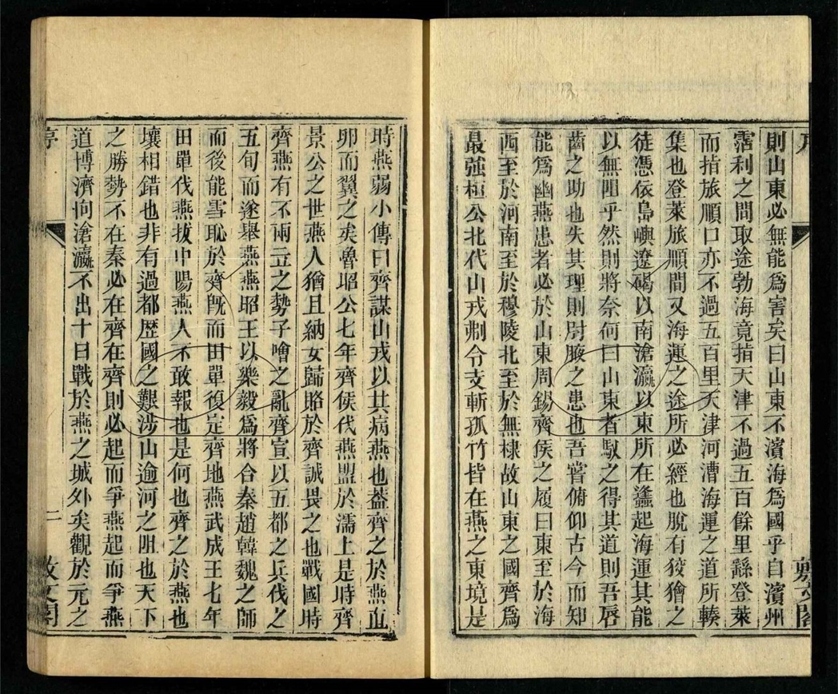 則山東必無能為害矣曰山東不濱海為國乎自濱州
霑利之間取途勃海竟指天津不過五百餘里繇登萊
而指旅順口亦不過五百里天津河漕海運之道所輳
集也登萊旅順間又海運之途所必經也脫有狡獪之
徒憑依島嶼遼碣以南滄瀛以東所在蠭起海運其能
以無阻乎然則將奈何曰山東者馭之得其道則吾唇
齒之助也失其理則肘腋之患也吾嘗俯仰古今而知
能為幽燕患者必於山東周錫齊侯之履曰東至於海
西至於河南至於穆陵北至於無棣故山東之國齊為
最強桓公北伐山戎刜令支斬孤竹皆在燕之東境是
時燕弱小傳曰齊謀山戎以其病燕也葢齊之於燕直
卵而翼之矣魯昭公七年齊侯伐燕盟於濡上是時齊
景公之世燕人猶且納女歸賂於齊誠畏之也戰國時
齊燕有不兩立之勢子噲之亂齊宣以五都之兵伐之
五旬而遂舉燕燕昭王以樂毅為將合秦趙韓魏之師
而後能雪恥於齊旣而田單復定齊地燕武成王七年
田單伐燕拔中陽燕人不敢報也是何也齊之於燕也
壤相錯也非有過都歷國之艱涉山逾河之阻也天下
之勝勢不在秦必在齊在齊則必起而爭燕起而爭燕
道博濟向滄瀛不出十日戰於燕之城外矣觀於元之
序
二
敷文閣